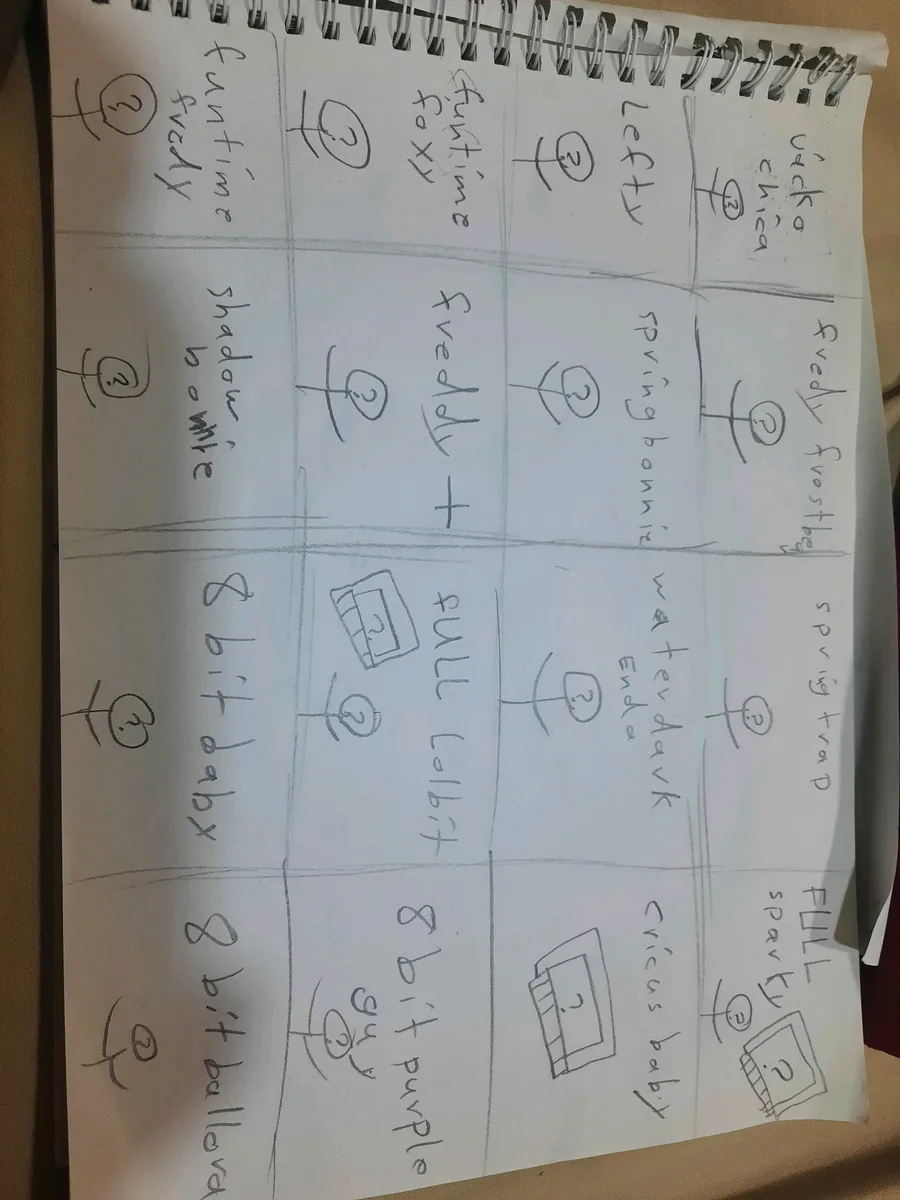 racko
chica
?
fredy frostbey
?
spring trap
?
FULL
sparky
?
?
Lefty
?
spring bonnie
?
waterdark
Enda
?
cricus baby
?
funtime
foxy
?
freddy +
?
FULL Lolbit
?
?
8 bit purple
guy
?
funtime
fredy
?
shadow
bonnie
?
8 bit baby
?
8 bit ballora
?